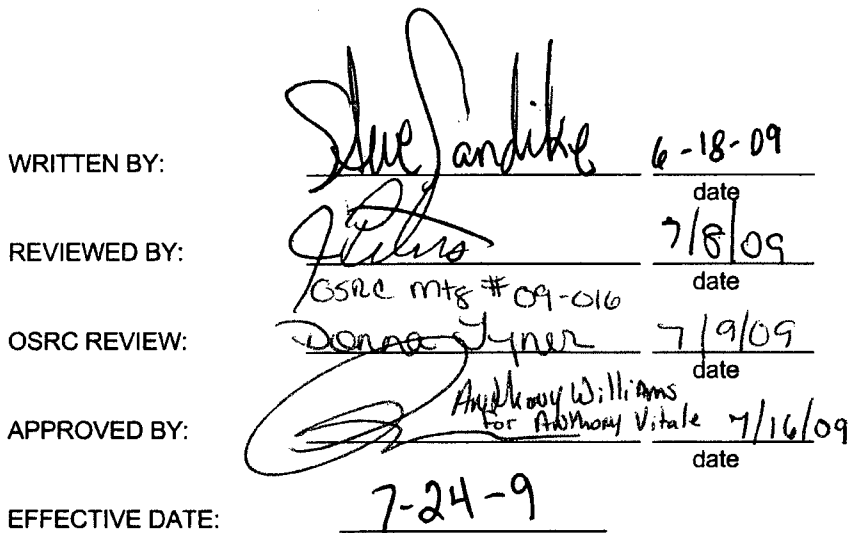 WRITTEN BY: Steve Sandike 6-18-09
date
REVIEWED BY: 7/8/09
date
OSRC mtg # 09-016
OSRC REVIEW: Donna Tyner 7/9/09
date
Anthony Williams
APPROVED BY: for Anthony Vitale 7/16/09
date
EFFECTIVE DATE: 7-24-9